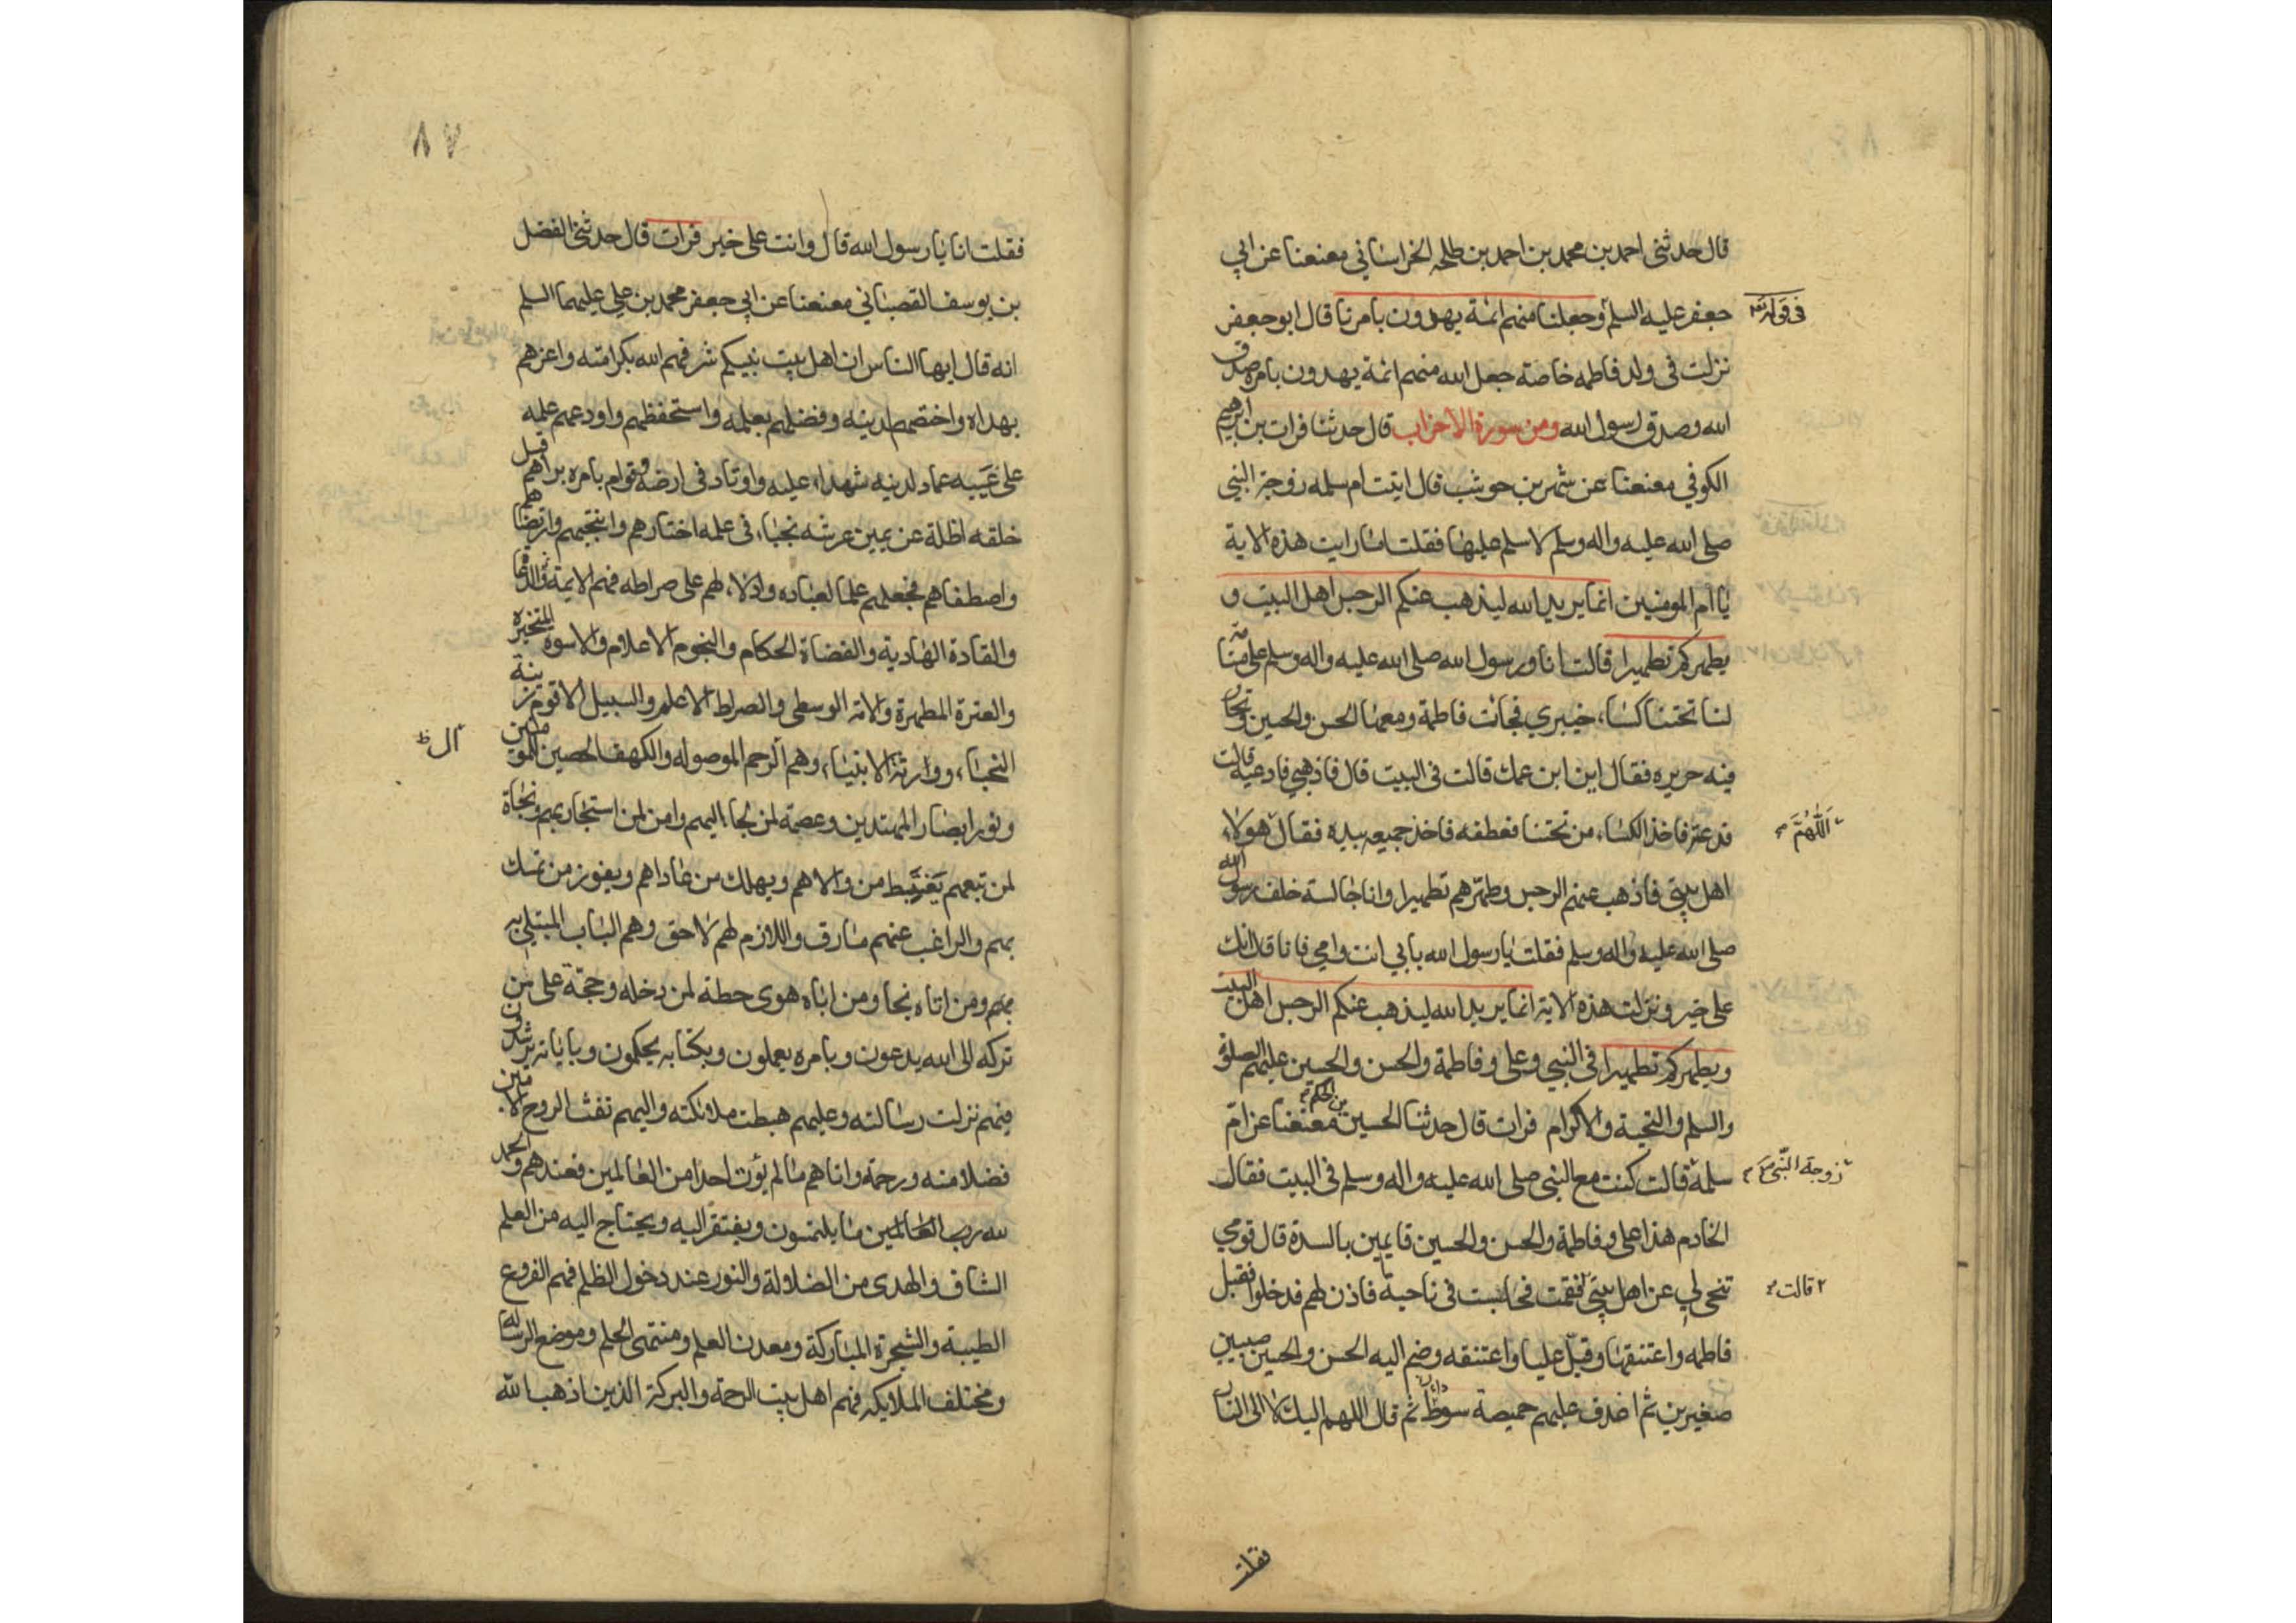 قال حدثنى احمد بن محمد بن احمد بن طلحه الخراساني معنعنا عن ابي
جعفر عليه السلم وجعلنا منهم ائمة يهدون بامرنا قال ابو جعفر
نزلت فى ولد فاطمه خاصة جعل الله منهم ائمة يهدون بامره صدق
الله وصدق رسول الله ومن سورة الاحزاب قال حدثنا فرات بن ابرهيم
الكوفي معنعنا عن شهر بن حوشب قال اتيت ام سلمه زوجة النبي
صلى الله عليه واله وسلم لاسلم عليها فقلت اما رايت هذه الاية
يا ام المومنين انما يريد الله ليذهب عنكم الرجس اهل البيت و
يطهركم تطهيرا قالت انا ورسول الله صلى الله عليه واله وسلم على منامة
لنا تحتنا كساء خيبري فجائت فاطمة ومعها الحسن والحسين وفخار
فيه حريره فقال اين ابن عمك قالت في البيت قال فاذهبي فادعيه قالت
فدعته فاخذ الكساء من تحتنا فعطفه فاخذ جميعه بيده فقال هولاء
اهل بيتي فاذهب عنهم الرجس وطهرهم تطهيرا وانا جالسة خلف رسول الله
صلى الله عليه واله وسلم فقلت يا رسول الله بابي انت وامي فانا قال انك
على خير ونزلت هذه الاية انما يريد الله ليذهب عنكم الرجس اهل البيت
ويطهركم تطهيرا في النبي وعلى وفاطمة والحسن والحسين عليهم الصلوة
والسلم والتحية والاكرام فرات قال حدثنا الحسين بن الحكم معنعنا عن ام
سلمة قالت كنت مع النبي صلى الله عليه واله وسلم في البيت فقال
الخادم هذا على وفاطمة والحسن والحسين قايمين بالسدة قال قومي
تنحى لي عن اهل بيتي فقمت فجلست في ناحية فاذن لهم فدخلوا فقبل
فاطمه واعتنقها وقبل عليا واعتنقه وضم اليه الحسن والحسين صبيين
صغيرين ثم اغدف عليهم خميصة سوداء ثم قال اللهم اليك لا الى النار
اللهم
زوجة النبي
قالت
فقلت
٨٧
فقلت انا يا رسول الله قال وانت على خير فرات قال حدثنى الفضل
بن يوسف القصباني معنعنا عن ابي جعفر محمد بن علي عليهما السلم
انه قال ايها الناس ان اهل بيت نبيكم شرفهم الله بكرامته واعزهم
بهداه واختصهم لدينه وفضلهم بعلمه واستحفظهم واودعهم علمه
على غيبه عماد لدينه شهداء عليه واوتاد فى ارضه وقوام بامره براهم قبل
خلقه اظلة عن يمين عرشه نجباء فى علمه اختارهم وانتجبهم وارتضاهم
واصطفاهم فجعلهم علما لعباده وادلاء لهم على صراطه فهم الايمة والدعاة
والقادة الهادية والقضاة الحكام والنجوم الاعلام والاسوه المتخيرة
والعترة المطهرة والامة الوسطى والصراط الاعلم والسبيل الاقوم زينة
النجباء ووارثة الانبياء وهم الرحم الموصوله والكهف الحصين للمومنين
ونور ابصار المهتدين وعصمة لمن لجا اليهم وامن لمن استجار بهم ونجاة
لمن تبعهم يغتبط من والاهم ويهلك من عاداهم ويفوز من تمسك
بهم والراغب عنهم مارق واللازم لهم لاحق وهم الباب المبتلى به
من اتاه نجا ومن اباه هوى حطة لمن دخله وحجة على من
تركه الى الله يدعون وبامره يعملون وبكتابه يحكمون وباياته يرشدون
فيهم نزلت رسالته وعليهم هبطت ملائكته واليهم نفث الروح الامين
فضلا منه ورحمة واتاهم ما لم يؤت احدا من العالمين فعندهم والحمد
لله رب العالمين ما يلتمسون ويفتقر اليه ويحتاج اليه من العلم
الشاف والهدى من الضلالة والنور عند دخول الظلم فهم الفروع
الطيبة والشجرة المباركة ومعدن العلم ومنتهى الحلم وموضع الرسالة
ومختلف الملايكه فهم اهل بيت الرحمة والبركة الذين اذهب الله